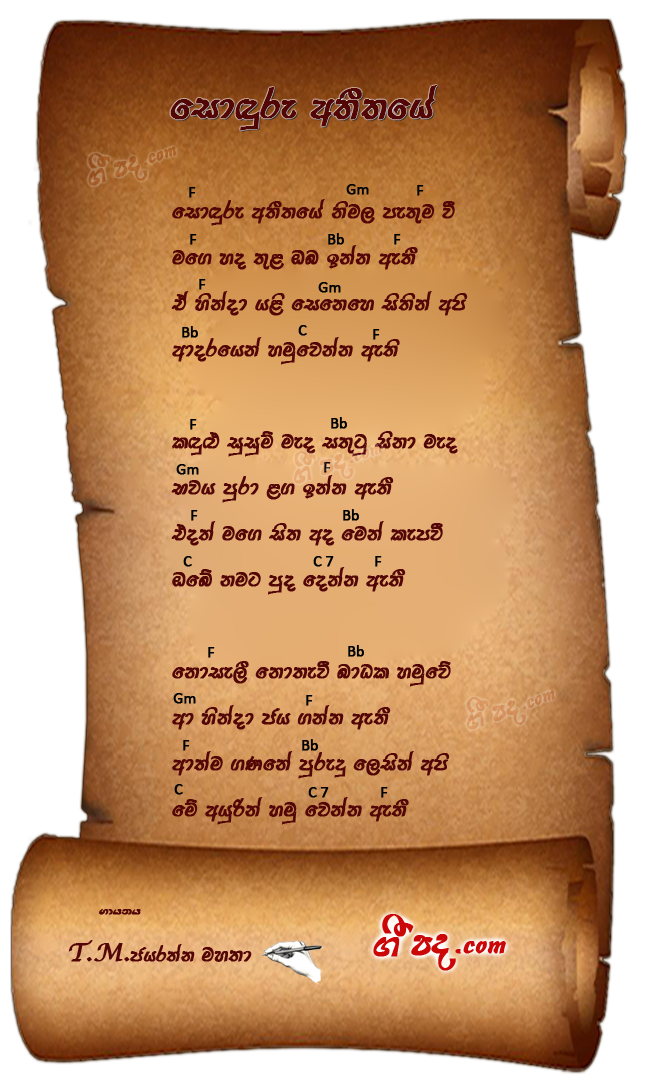 සොඳුරු අතීතයේ
ගී පද.com
F Gm F
සොඳුරු අතීතයේ නිමල පැතුම වී
F Bb F
මගෙ හද තුළ ඔබ ඉන්න ඇතී
F Gm
ඒ හින්දා යළි සෙනෙහෙ සිතින් අපි
Bb C F
ආදරයෙන් හමුවෙන්න ඇති
F Bb
කඳුළු සුසුම් මැද සතුටු සිනා මැද
Gm F
භවය පුරා ළඟ ඉන්න ඇතී
F Bb
එදත් මගෙ සිත අද මෙන් කැපවී
C C 7 F
ඔබේ නමට පුද දෙන්න ඇතී
F Bb
නොසැලී නොතැවී බාධක හමුවේ
Gm F
ආ හින්දා ජය ගන්න ඇතී
ගී පද.com
F Bb
ආත්ම ගණනේ පුරුදු ලෙසින් අපි
C C 7 F
මේ අයුරින් හමු වෙන්න ඇතී
ගායනය
T.M.ජයරත්න මහතා
ගී පද.com